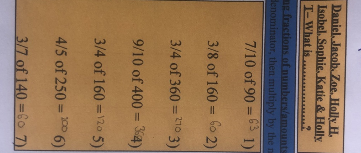 Daniel, Jacob, Zoe, Holly H,
Isobel, Sophie, Katie & Holly
T– What is ..................?
ng fractions of numbers/amounts
denominate, then multiply by the
7/10 of 90 = 63 1)
3/8 of 160 = 60 2)
3/4 of 360 = 270 3)
9/10 of 400 = 360 4)
3/4 of 160 = 120 5)
4/5 of 250 = 200 6)
3/7 of 140 = 60 7)